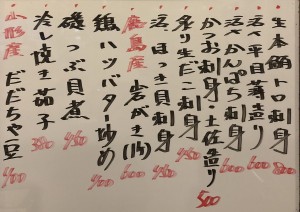 生本鮪トロ刺身 800
活〆平目薄造り 600
活〆かんぱち刺身 600
かつお刺身・土佐造り 500
炙り生だこ刺身 450
活ほっき貝刺身 450
岩がき(1ヶ) 600
鶏ハツバター炒め 400
磯つぶ貝煮 450
冷し焼き茄子 380
山形産 だだちゃ豆 400